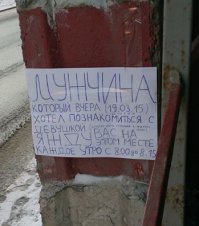 МУЖЧИНА
КОТОРЫЙ ВЧЕРА (19.03.15)
ХОТЕЛ ПОЗНАКОМИТЬСЯ С
ДЕВУШКОЙ
ЖДУ ВАС НА
ЭТОМ МЕСТЕ
КАЖДОЕ УТРО С 8:00 ДО 8.15